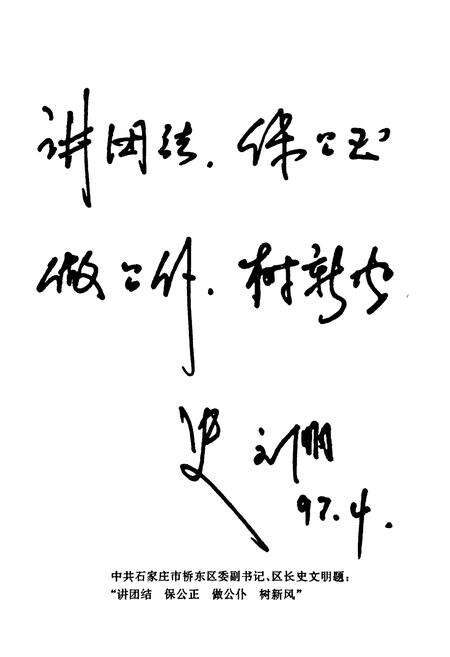 讲团结.保公正
做公仆.树新风
史文明
97.4.
中共石家庄市桥东区委副书记、区长史文明题：
“讲团结 保公正 做公仆 树新风”